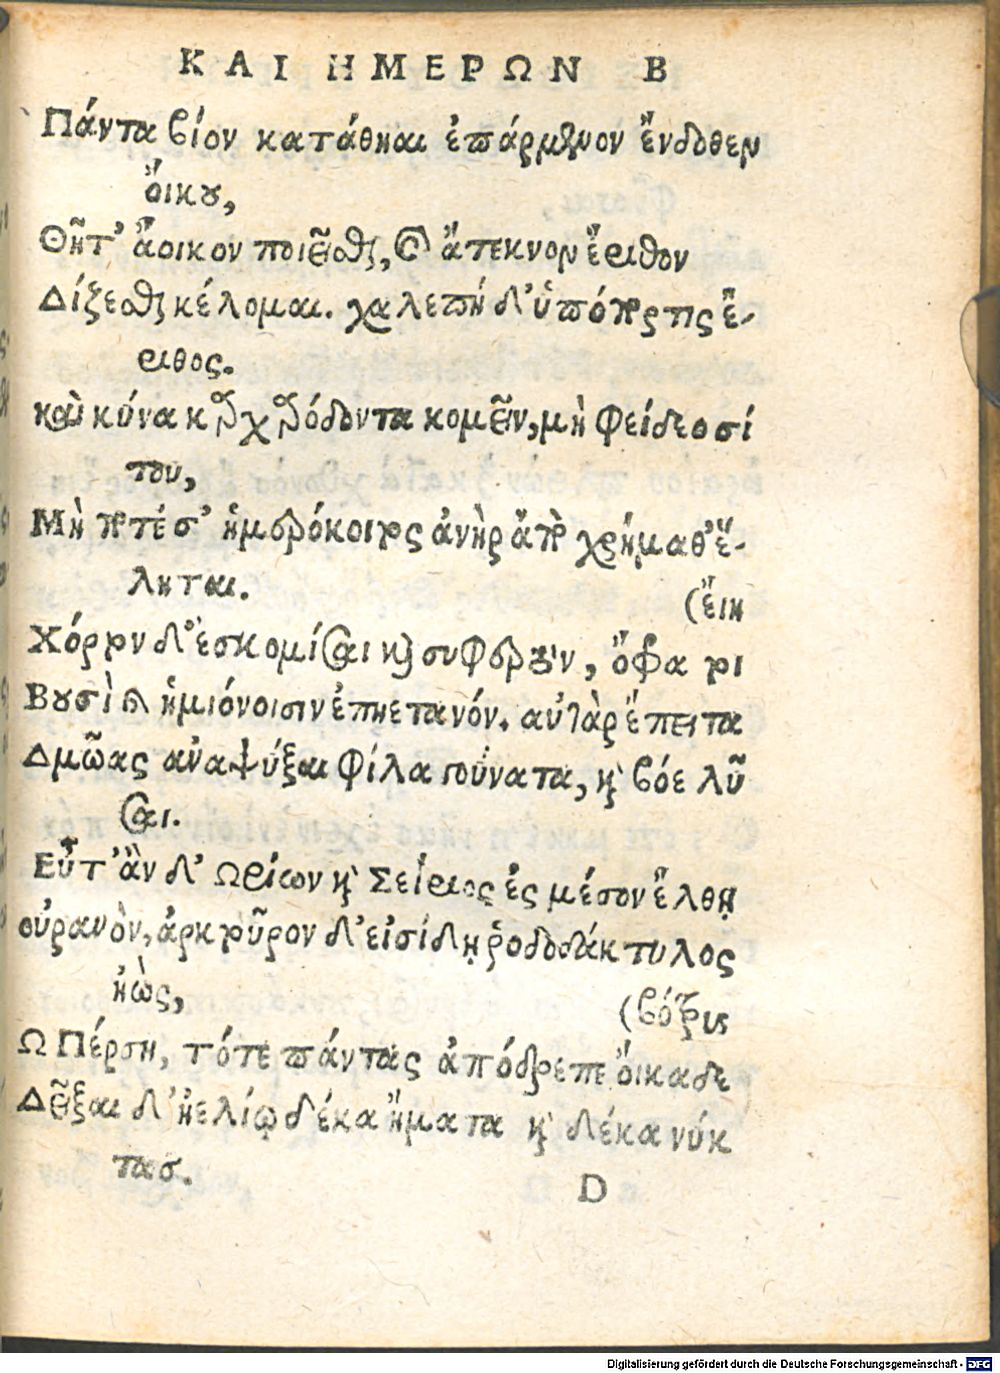 ΚΑΙ ΗΜΕΡΩΝ Β
Πάντα βίον κατάθηαι ἐπάρμενον ἔνδοθεν
οἴκου,
Θῆτ' ἄοικον ποιεῖσθαι, καὶ ἄτεκνον ἔριθον
Δίζεσθαι κέλομαι. χαλεπὴ δ' ὑπόπορτις ἔ-
ριθος.
καὶ κύνα καρχαρόδοντα κομεῖν, μὴ φείδεο σί
του,
Μή ποτέ σ' ἡμερόκοιτος ἀνὴρ ἀπὸ χρήμαθ' ἕ-
ληται.
(εἴη
Χόρτον δ' ἐσκομίσαι καὶ συρφετὸν, ὄφρα τοι
Βουσὶ καὶ ἡμιόνοισιν ἐπηετανόν. αὐτὰρ ἔπειτα
Δμῶας ἀναψύξαι φίλα γούνατα, καὶ βόε λῦ
σαι.
Εὖτ' ἂν δ' Ωρίων καὶ Σείριος ἐς μέσον ἔλθῃ
οὐρανὸν, ἀρκτοῦρον δ' εἰσίδῃ ῥοδοδάκτυλος
ἠὼς,
(βότρυς
Ω Πέρση, τότε πάντας ἀπόδρεπε οἴκαδε
Δεῖξαι δ' ἠελίῳ δέκα ἤματα καὶ δέκα νύκ
τας.
D
Digitalisierung gefördert durch die Deutsche Forschungsgemeinschaft - DFG